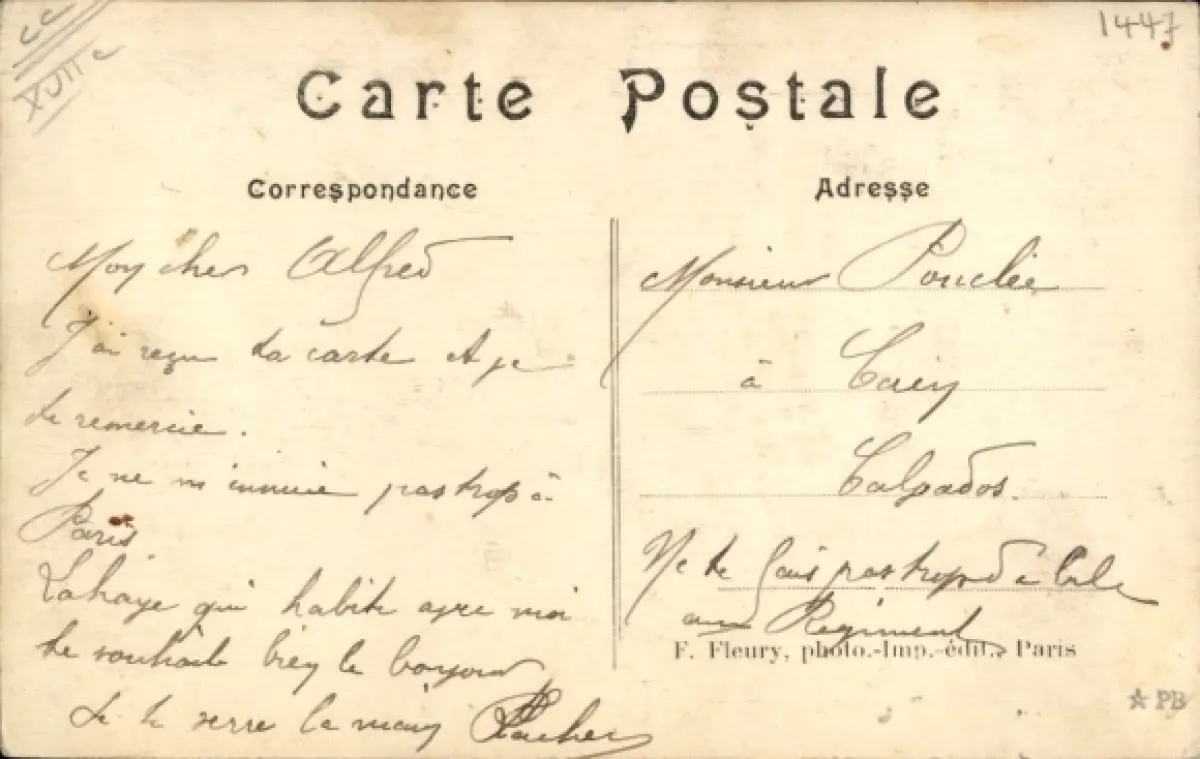 CC
XVIIe
1447
Carte Postale
Correspondance
Mon cher Alfred
J'ai reçu ta carte et je
te remercie.
Je ne m'innuie pas trop à
Paris
Lahaye qui habite avec moi
te souhaite bien le bonjour
Je te serre la main
Adresse
Monsieur Ponclée
à Caen
Calvados.
Ne te fais pas trop de bile
au Régiment
F. Fleury, photo.-Imp.-édit., Paris
☆ PB